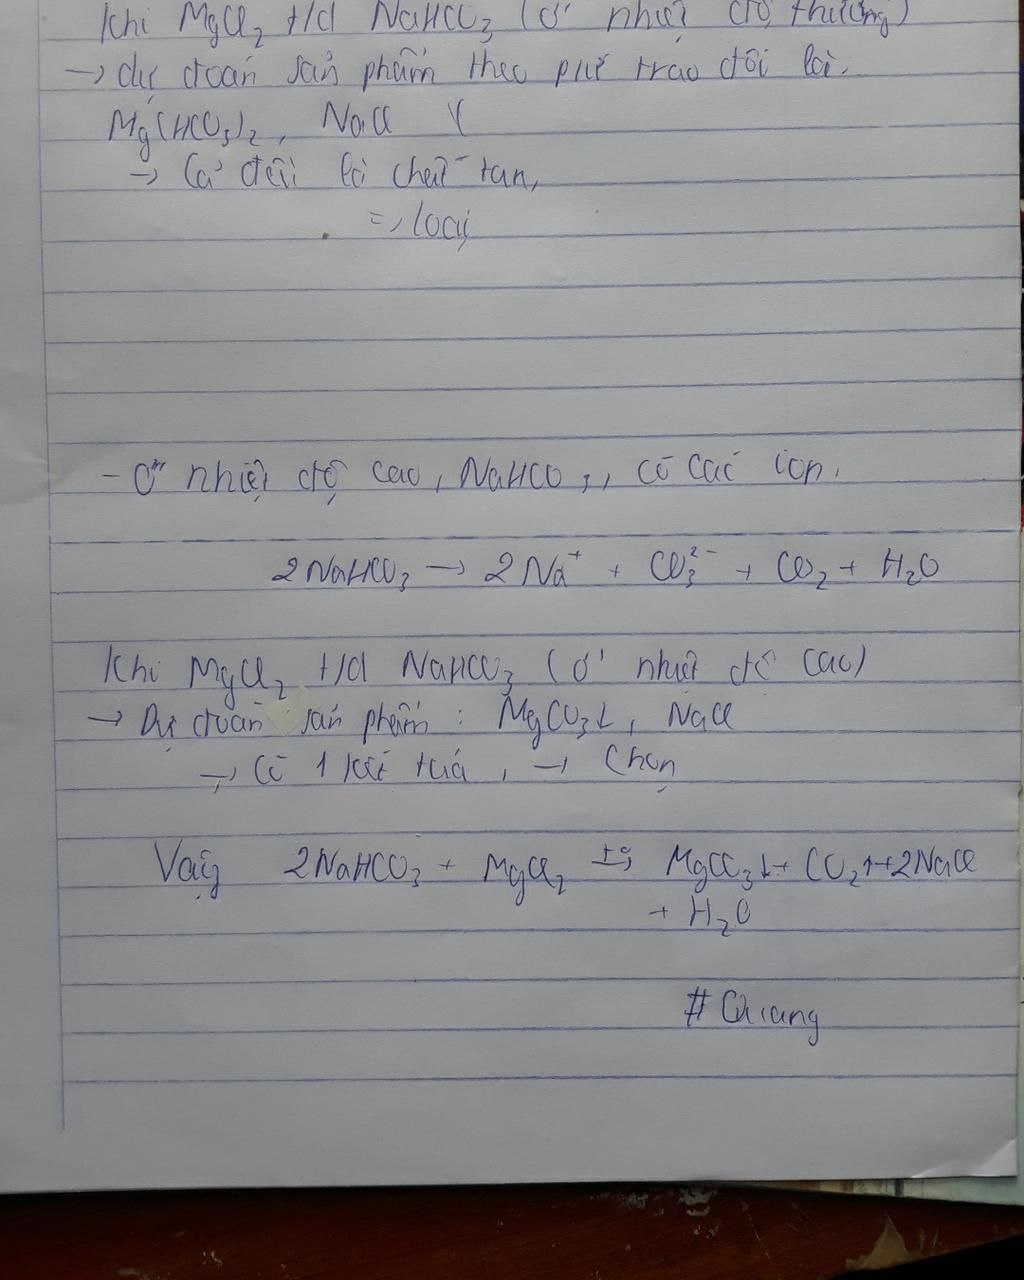 Khi MgCl₂ t/d NaHCO₃ (ở nhiệt độ thường)
→ dự đoán sản phẩm theo pứ trao đổi là.
Mg(HCO₃)₂, NaCl
→ Cả đều là chất tan,
=> loại
- Ở nhiệt độ cao, NaHCO₃, có các ion.
2NaHCO₃ → 2Na⁺ + CO₃²⁻ + CO₂ + H₂O
Khi MgCl₂ t/d NaHCO₃ (ở nhiệt độ cao)
→ Dự đoán sản phẩm : MgCO₃↓, NaCl
→ Có 1 kết tủa, → Chọn
Vậy 2NaHCO₃ + MgCl₂ t°→ MgCO₃↓ + CO₂↑ + 2NaCl
+ H₂O